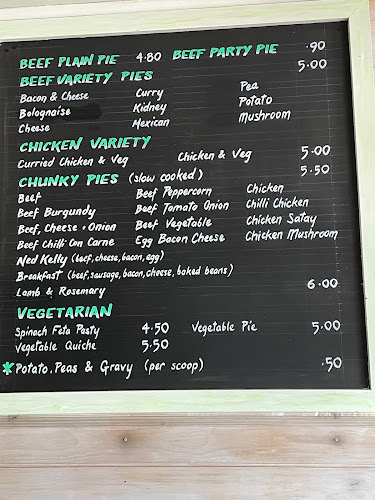 BEEF PLAIN PIE 4.80 BEEF PARTY PIE .90
BEEF VARIETY PIES 5.00
Bacon & Cheese Curry Pea
Bolognaise Kidney Potato
Cheese Mexican Mushroom
CHICKEN VARIETY
Curried Chicken & Veg Chicken & Veg 5.00
CHUNKY PIES (slow cooked) 5.50
Beef Beef Peppercorn Chicken
Beef Burgundy Beef Tomato Onion Chilli Chicken
Beef, Cheese, Onion Beef Vegetable Chicken Satay
Beef Chilli Con Carne Egg Bacon Cheese Chicken Mushroom
Ned Kelly (beef, cheese, bacon, egg)
Breakfast (beef, sausage, bacon, cheese, baked beans)
Lamb & Rosemary 6.00
VEGETARIAN
Spinach Feta Pasty 4.50 Vegetable Pie 5.00
Vegetable Quiche 5.50
*Potato, Peas & Gravy (per scoop) .50